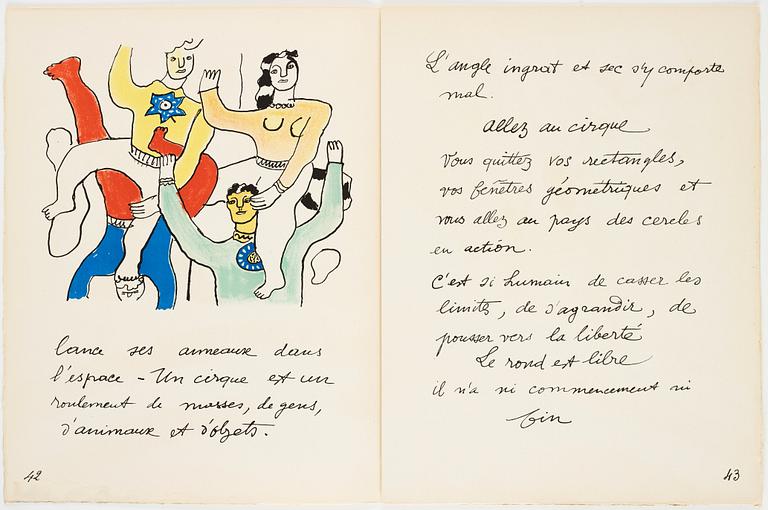 lance ses anneaux dans
l'espace - Un cirque est un
roulement de masses, de gens,
d'animaux et d'objets.
42
L'angle ingrat et sec s'y comporte
mal.
allez au cirque
Vous quittez vos rectangles,
vos fenêtres géométriques et
vous allez au pays des cercles
en action.
C'est si humain de casser les
limites, de s'agrandir, de
pousser vers la liberté
Le rond est libre
il n'a ni commencement ni
fin
43